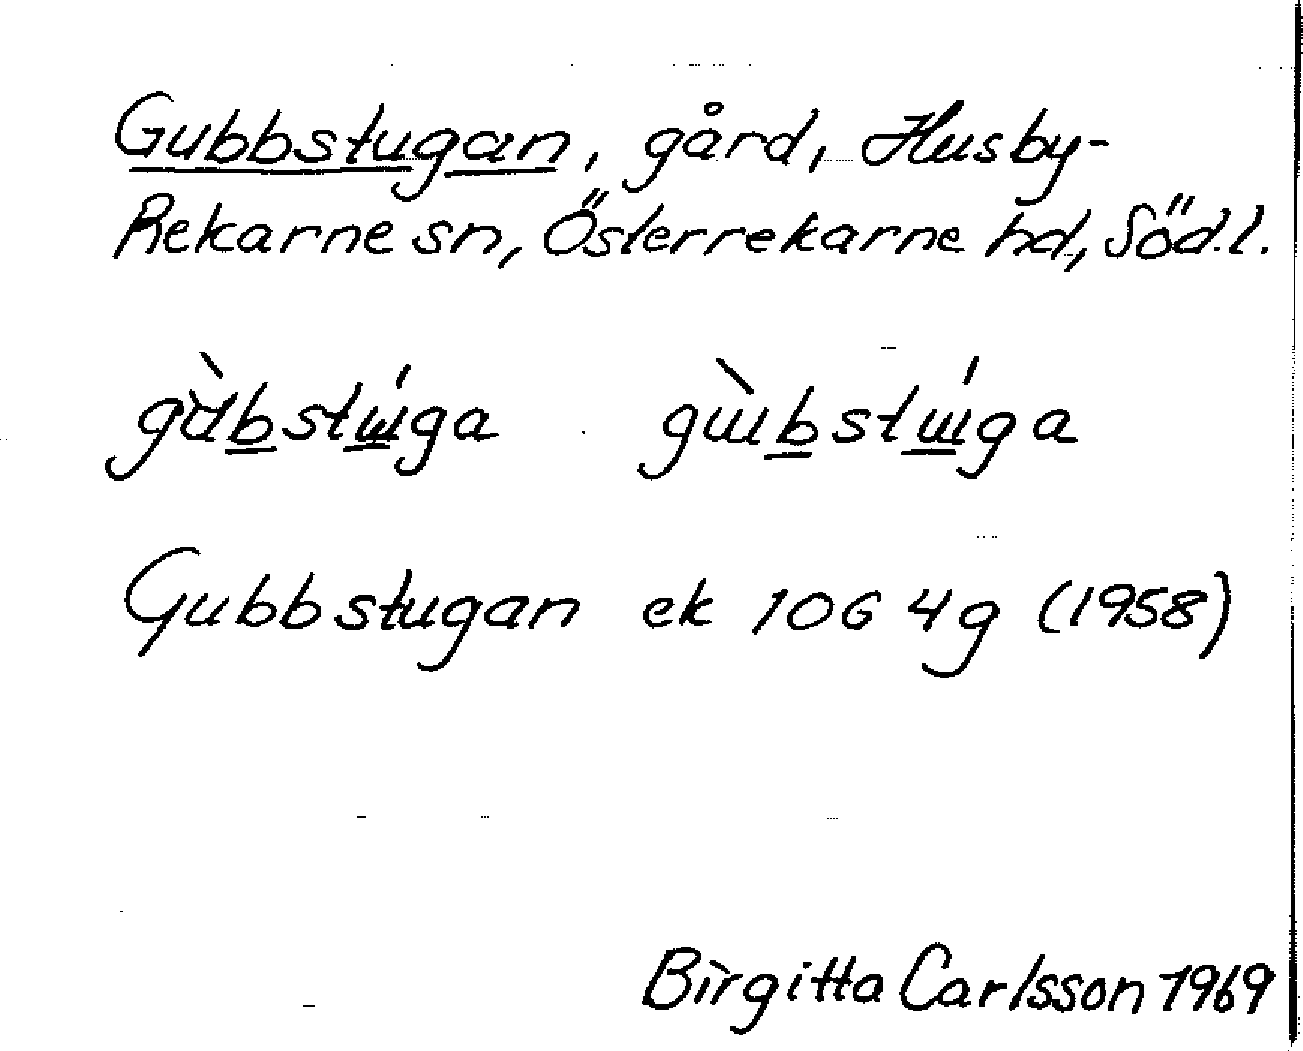 Gubbstugan, gård, Husby-
Rekarne sn, Österrekarne hd, Söd.l.
gùbstɯ́ga gɯ̀bstɯ́ga
Gubbstugan ek 10G 4g (1958)
Birgitta Carlsson 1969